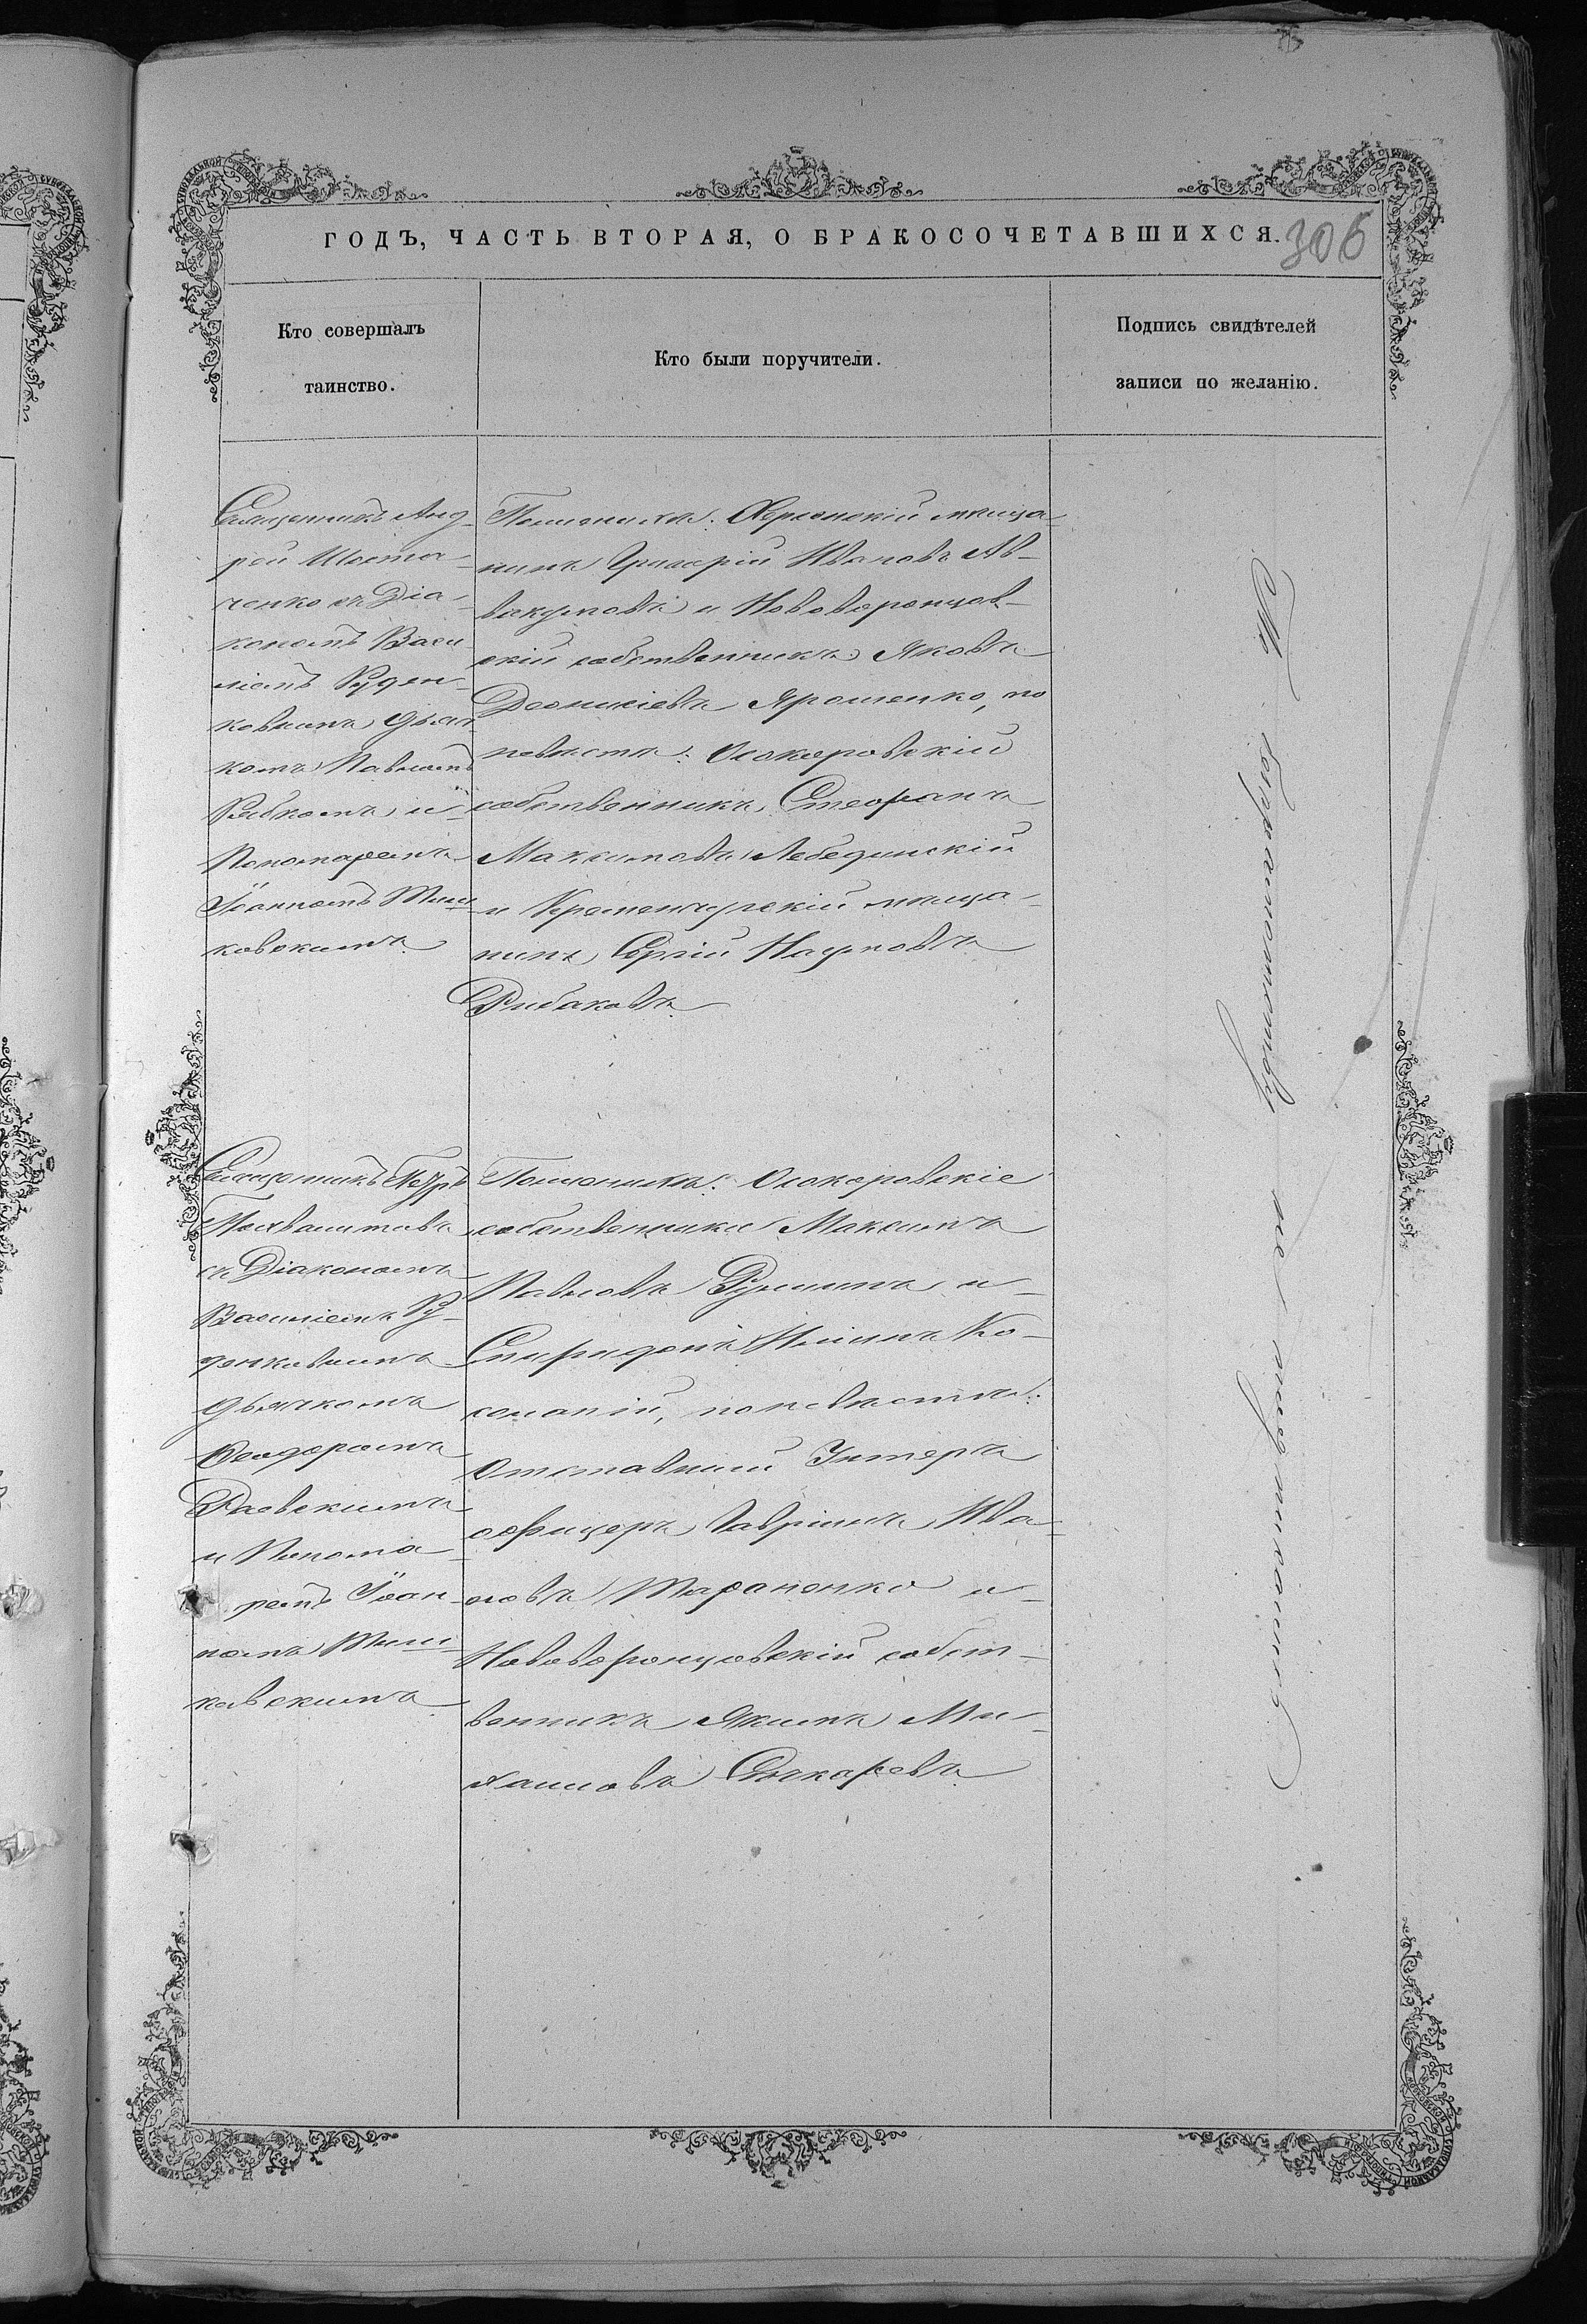 306
ГОДЪ, ЧАСТЬ ВТОРАЯ, О БРАКОСОЧЕТАВШИХСЯ.
Кто совершалъ
таинство.
Кто были поручители.
Подпись свидѣтелей
записи по желанію.
Священникъ Анд-
рей Шоста-
ченко съ Діа-
кономъ Васи
ліемъ Руден-
ковымъ дьяч
комъ Павломъ
и
Пономаремъ
Іоанномъ Тиш
ковскимъ
По женихѣ: Херсонскій мѣща-
нинъ Григорій Ивановъ Ав-
вакумовъ и Нововоронцов-
скій собственникъ Яковъ
Деонисіевъ Ярошенко, по
невѣстѣ: Осокоровскій
собственникъ Стефанъ
Максимовъ Лебединскій
и Кременчугскій мѣща-
нинъ Сергій Наумовъ
Рибаковъ
Священникъ Петръ
съ Діакономъ
Василіемъ Ру-
денковымъ
дьячкомъ
Ѳеодоромъ
Раевскимъ
и Понома-
ремъ Іоан-
номъ Тиш-
ковскимъ
По женихѣ: Осокоровскіе
собственники Максимъ
Павловъ и
Спиридонъ Ко-
по невѣстѣ:
Отставный Унтеръ
офицеръ Гавріилъ Ива-
новъ Тараненко и
Нововоронцовскій собст-
венникъ Якимъ Ми-
хаиловъ